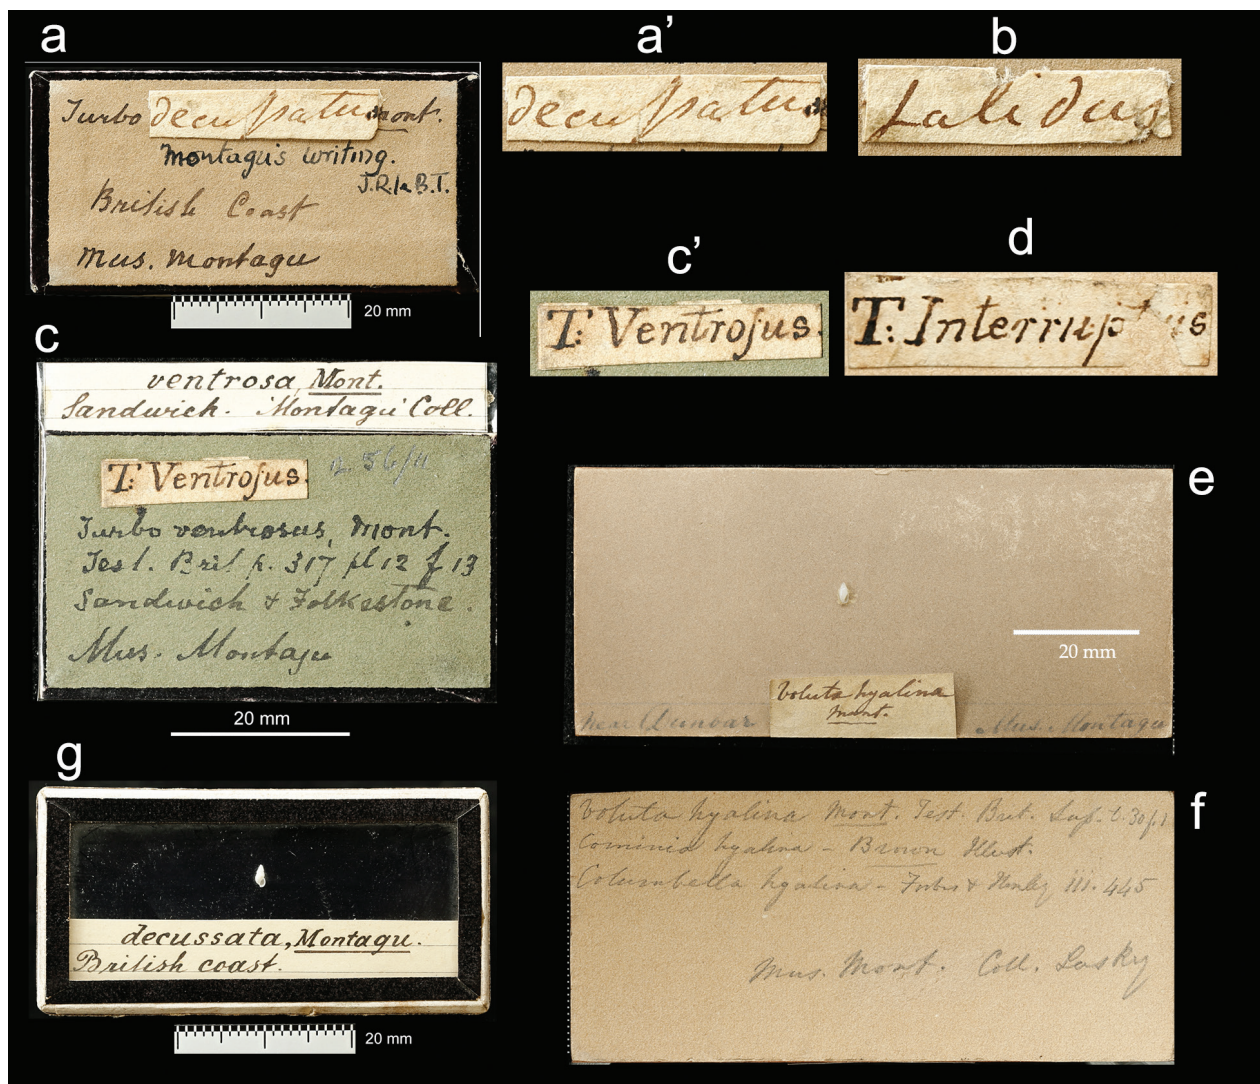 a
Turbo decuſsatus mont.
Montagu's writing.
J.R.le B.T.
British Coast
Mus. Montagu
20 mm
a’
decuſsatus
b
c’
T: Ventroſus.
d
T: Interruptus
c
ventrosa, Mont.
Sandwich. Montagu Coll.
T: Ventroſus.
Turbo ventrosus, Mont.
Test. Brit p. 317 pl 12 f 13
Sandwich & Folkestone.
Mus. Montagu
20 mm
e
20 mm
Voluta hyalina
Mont.
near Dunbar Mus. Montagu
g
decussata, Montagu.
British coast.
20 mm
f
Voluta hyalina Mont. Test. Brit. Sup. t. 30 f. 1
hyalina - Brown Illust.
Columbella hyalina - Forbes & Hanley iii. 445
Mus. Mont. Coll. Laskey